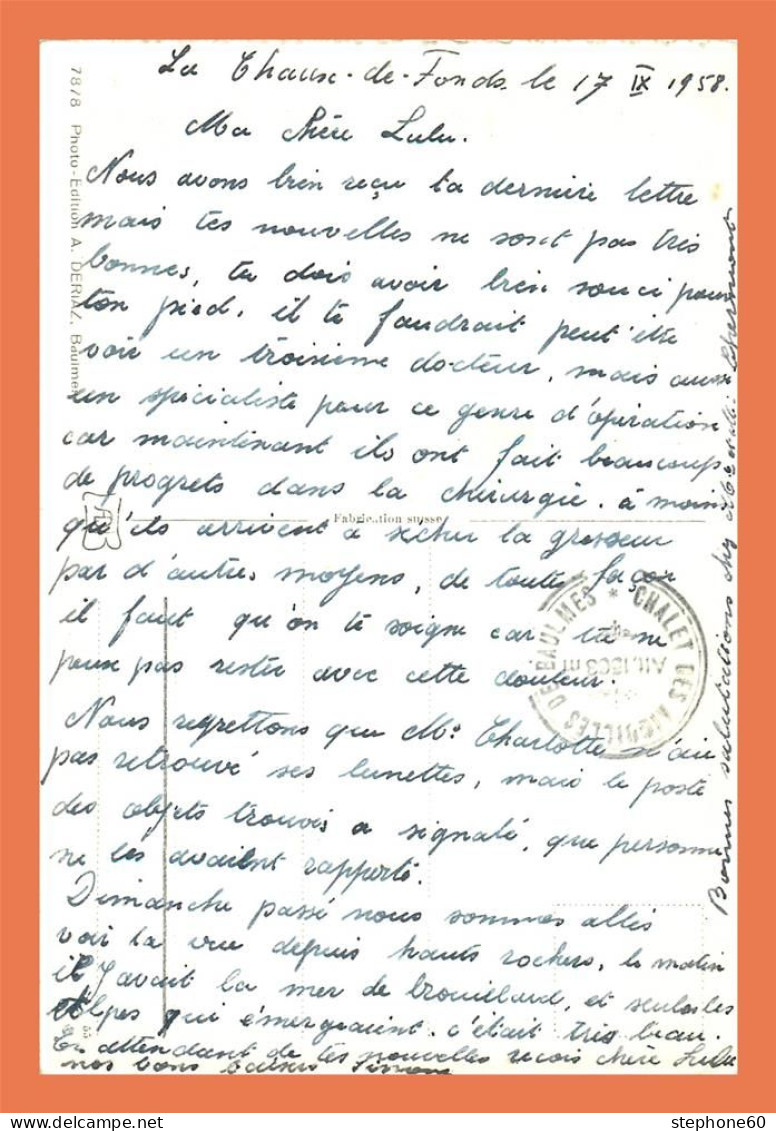 La Chaux-de-Fonds le 17 IX 1958.
Ma chère Lulu.
Nous avons bien reçu ta dernière lettre
mais tes nouvelles ne sont pas très
bonnes, tu dois avoir bien souci pour
ton pied, il te faudrait peut être
voir un troisième docteur, mais aussi
un spécialiste pour ce genre d'opération
car maintenant ils ont fait beaucoup
de progrets dans la chirurgie. à moin
qu'ils arrivent à sécher la grosseur
par d'autres moyens, de toute façon
il faut qu'on te soigne car tu ne
peux pas rester avec cette douleur.
Nous regrettons que Me Charlotte n'ait
pas retrouvé ses lunettes, mais le poste
des objets trouvés a signalé, que personne
ne les avaient rapporté.
Dimanche passé nous sommes allés
voir la vue depuis hauts rochers, le matin
il y avait la mer de brouillard, et seules les
Alpes qui émergeaient. c'était très beau.
En attendant de tes nouvelles reçois chère Lulu
nos bons baisers Simone
Bonnes salutations chez Me et Mr.
7878 Photo-Edition A. DERIAZ, Baulmes
Fabrication suisse
* CHALET DES AIGUILLES DE BAULMES
Alt. 1303 m
stephone60